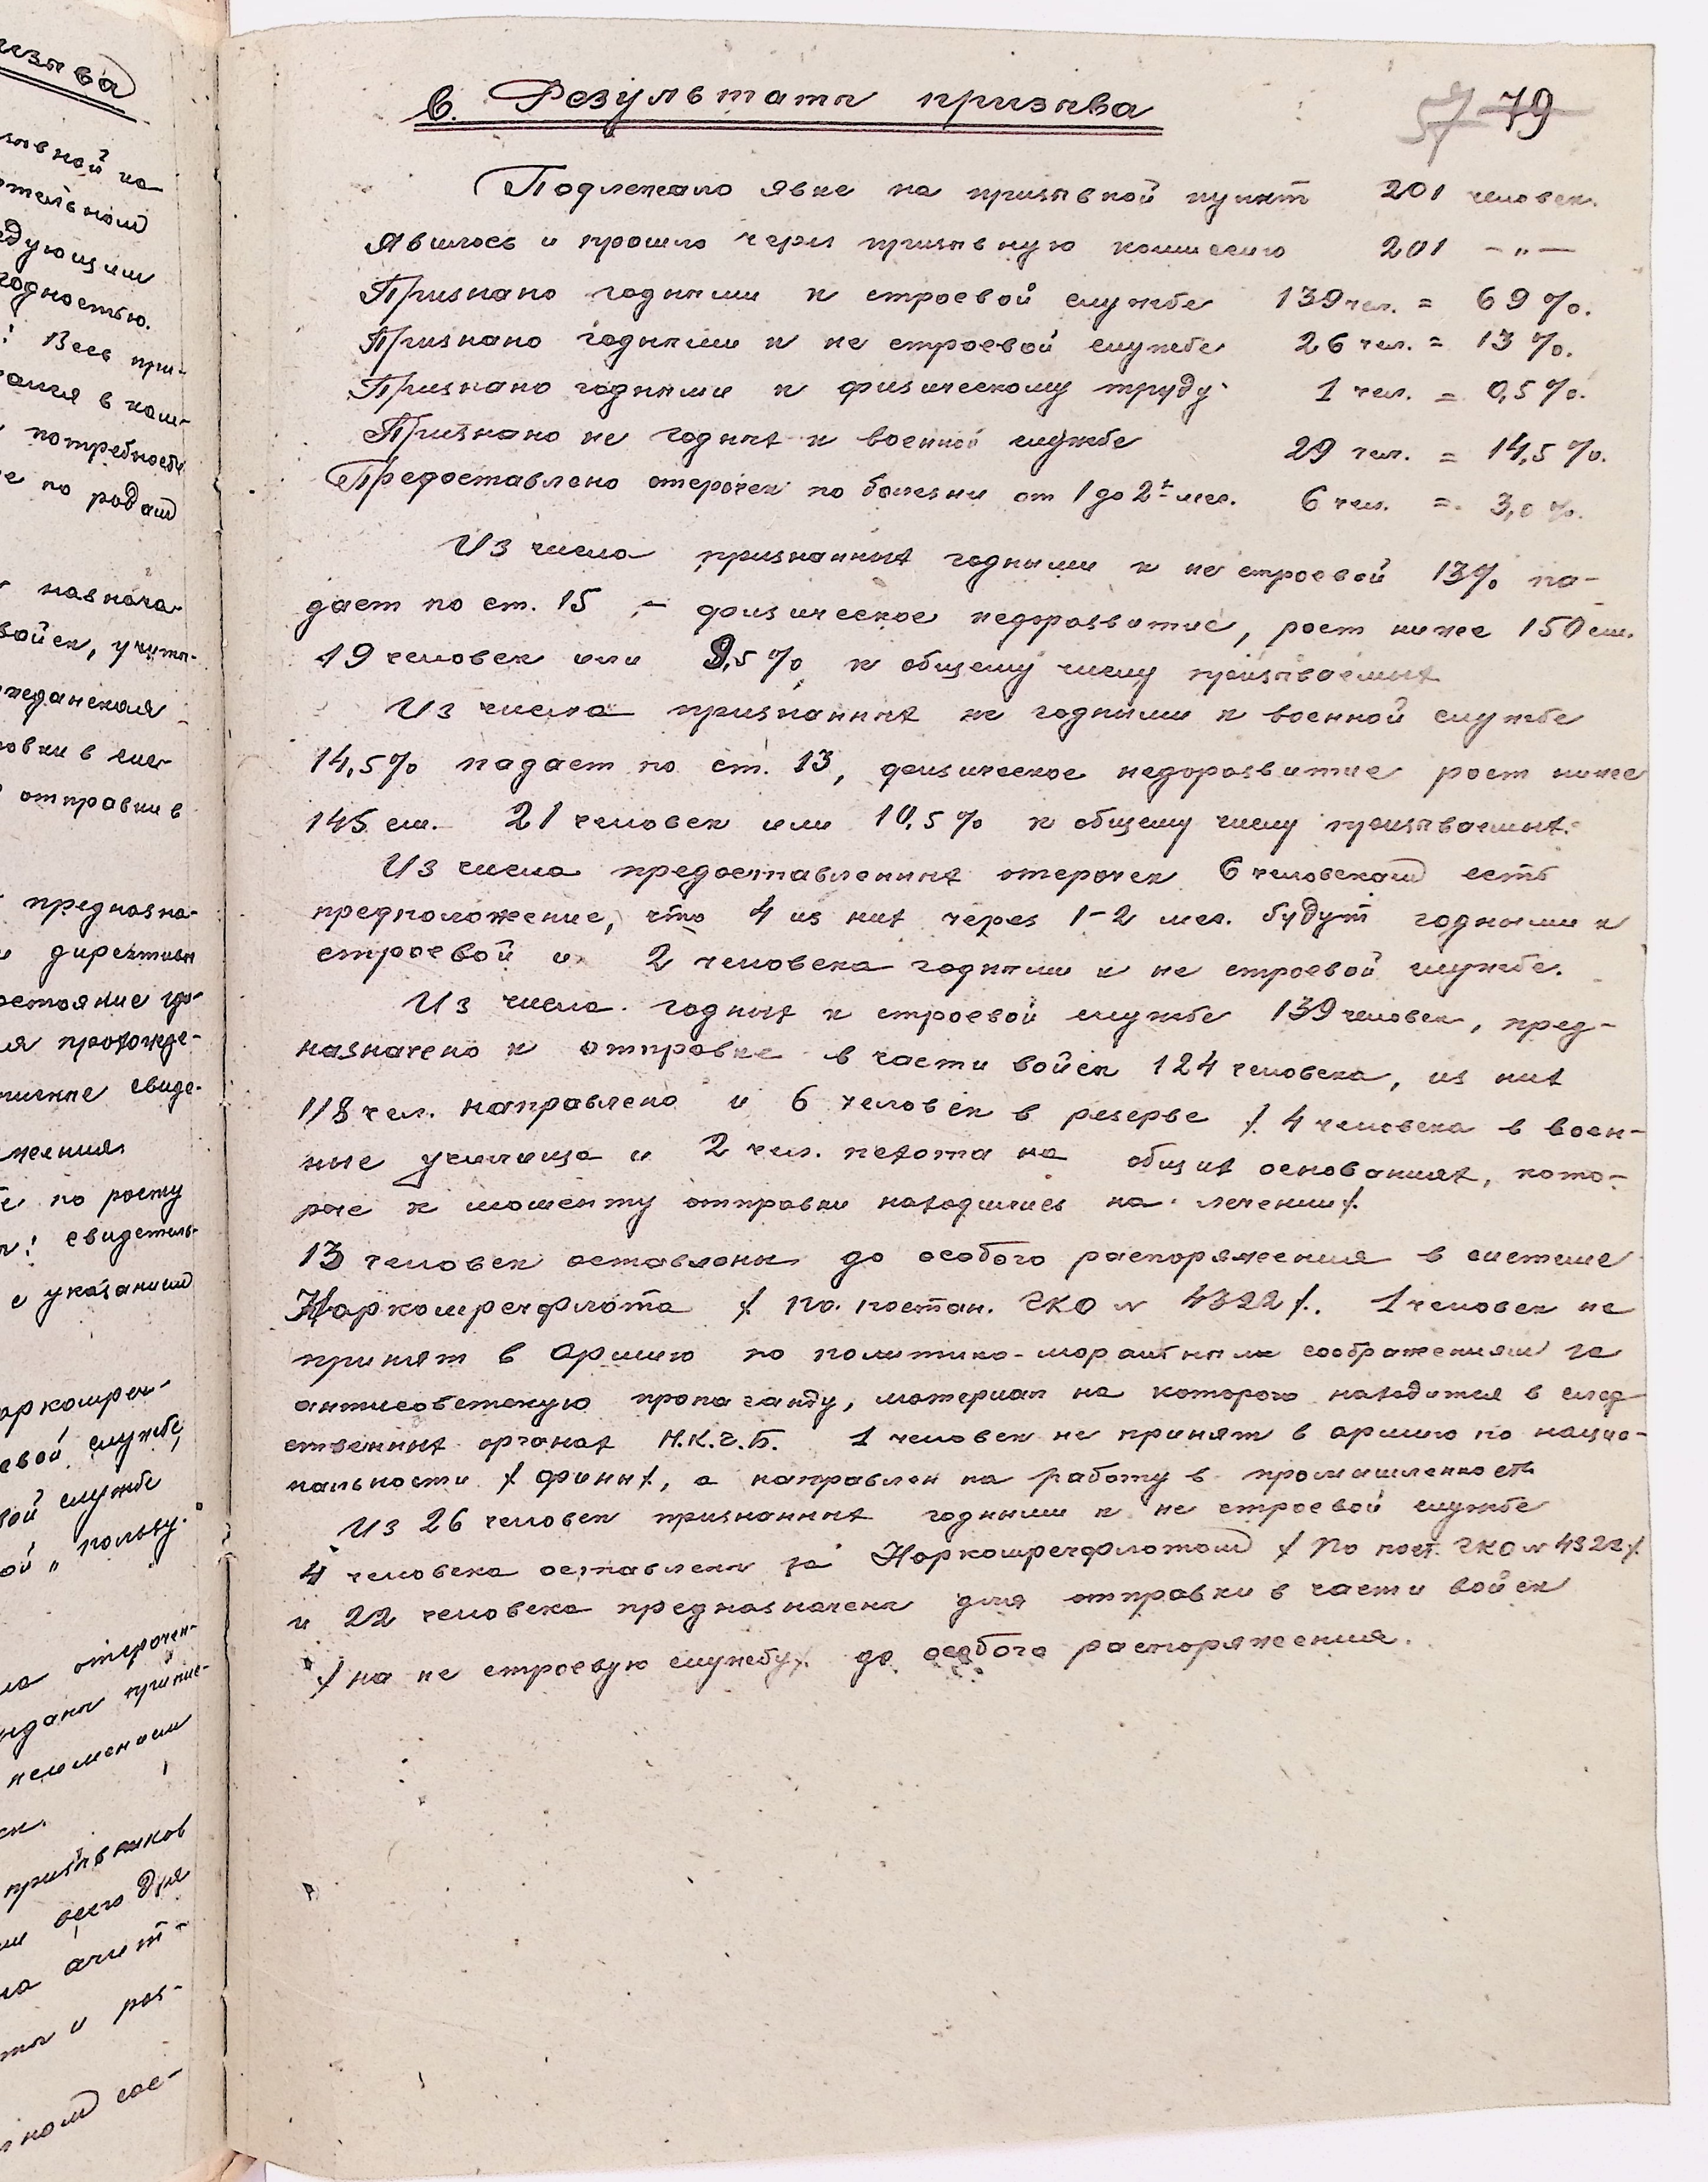 в. Результаты призыва
57 79
Подлежало явке на призывной пункт 201 человек.
Явилось и прошло через призывную комиссию 201 —„—
Признано годными к строевой службе 139 чел. = 69 %.
Признано годными к не строевой службе 26 чел. = 13 %.
Признано годными к физическому труду 1 чел. = 0,5 %.
Признано не годных к военной службе 29 чел. = 14,5 %.
Предоставлено отсрочек по болезни от 1 до 2х мес. 6 чел. = 3,0 %.
Из числа признанных годными к не строевой 13% па-
дает по ст. 15 – физическое недоразвитие, рост ниже 150 см.
19 человек или 9,5 % к общему числу призываемых
Из числа признанных не годными к военной службе
14,5% падает по ст. 13, физическое недоразвитие рост ниже
145 см. 21 человек или 10,5 % к общему числу призываемых.
Из числа предоставленных отсрочек 6 человекам есть
предположение, что 4 из них через 1-2 мес. будут годными к
строевой и 2 человека годными к не строевой службе.
Из числа годных к строевой службе 139 человек, пред-
назначено к отправке в части войск 124 человека, из них
118 чел. направлено и 6 человек в резерве /. 4 человека в воен-
ные училища и 2 чел. пехота на общих основаниях, кото-
рые к моменту отправки находились на лечении/.
13 человек оставлены до особого распоряжения в системе
Наркомречфлота / по. постан. ГКО № 4322/. 1 человек не
принят в Армию по политико-моральным соображениям за
антисоветскую пропаганду, материал на которого находится в след-
ственных органах Н.К.Г.Б. 1 человек не принят в армию по нацио-
нальности / финн/, а направлен на работу в промышленность
Из 26 человек признанных годными к не строевой службе
4 человека оставлены за Наркомречфлотом / По пост. ГКО № 4322/.
и 22 человека предназначены для отправки в части войск
/ на не строевую службу/. до особого распоряжения.